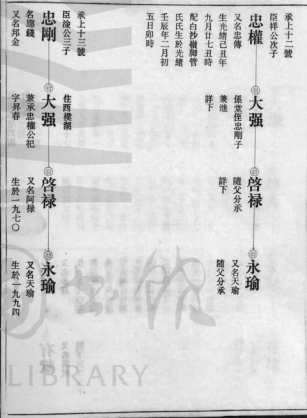 承上十二號
臣祥公次子
忠權
又名忠傳
生光緒己丑年
九月廿七丑時
配白沙嶺脚管
氏氏生於光緒
壬辰年二月初
五日卯時
大强
係堂侄忠剛子
兼继
詳下
啓禄
隨父分承
詳下
永瑜
又名天瑜
隨父分承
承上十三號
臣淦公三子
忠剛
名應錢
又名邦金
住西樸湖
大强
兼承忠權公祀
字昇春
啓禄
又名阿禄
生於一九七〇
永瑜
又名天瑜
生於一九九四
LIBRARY